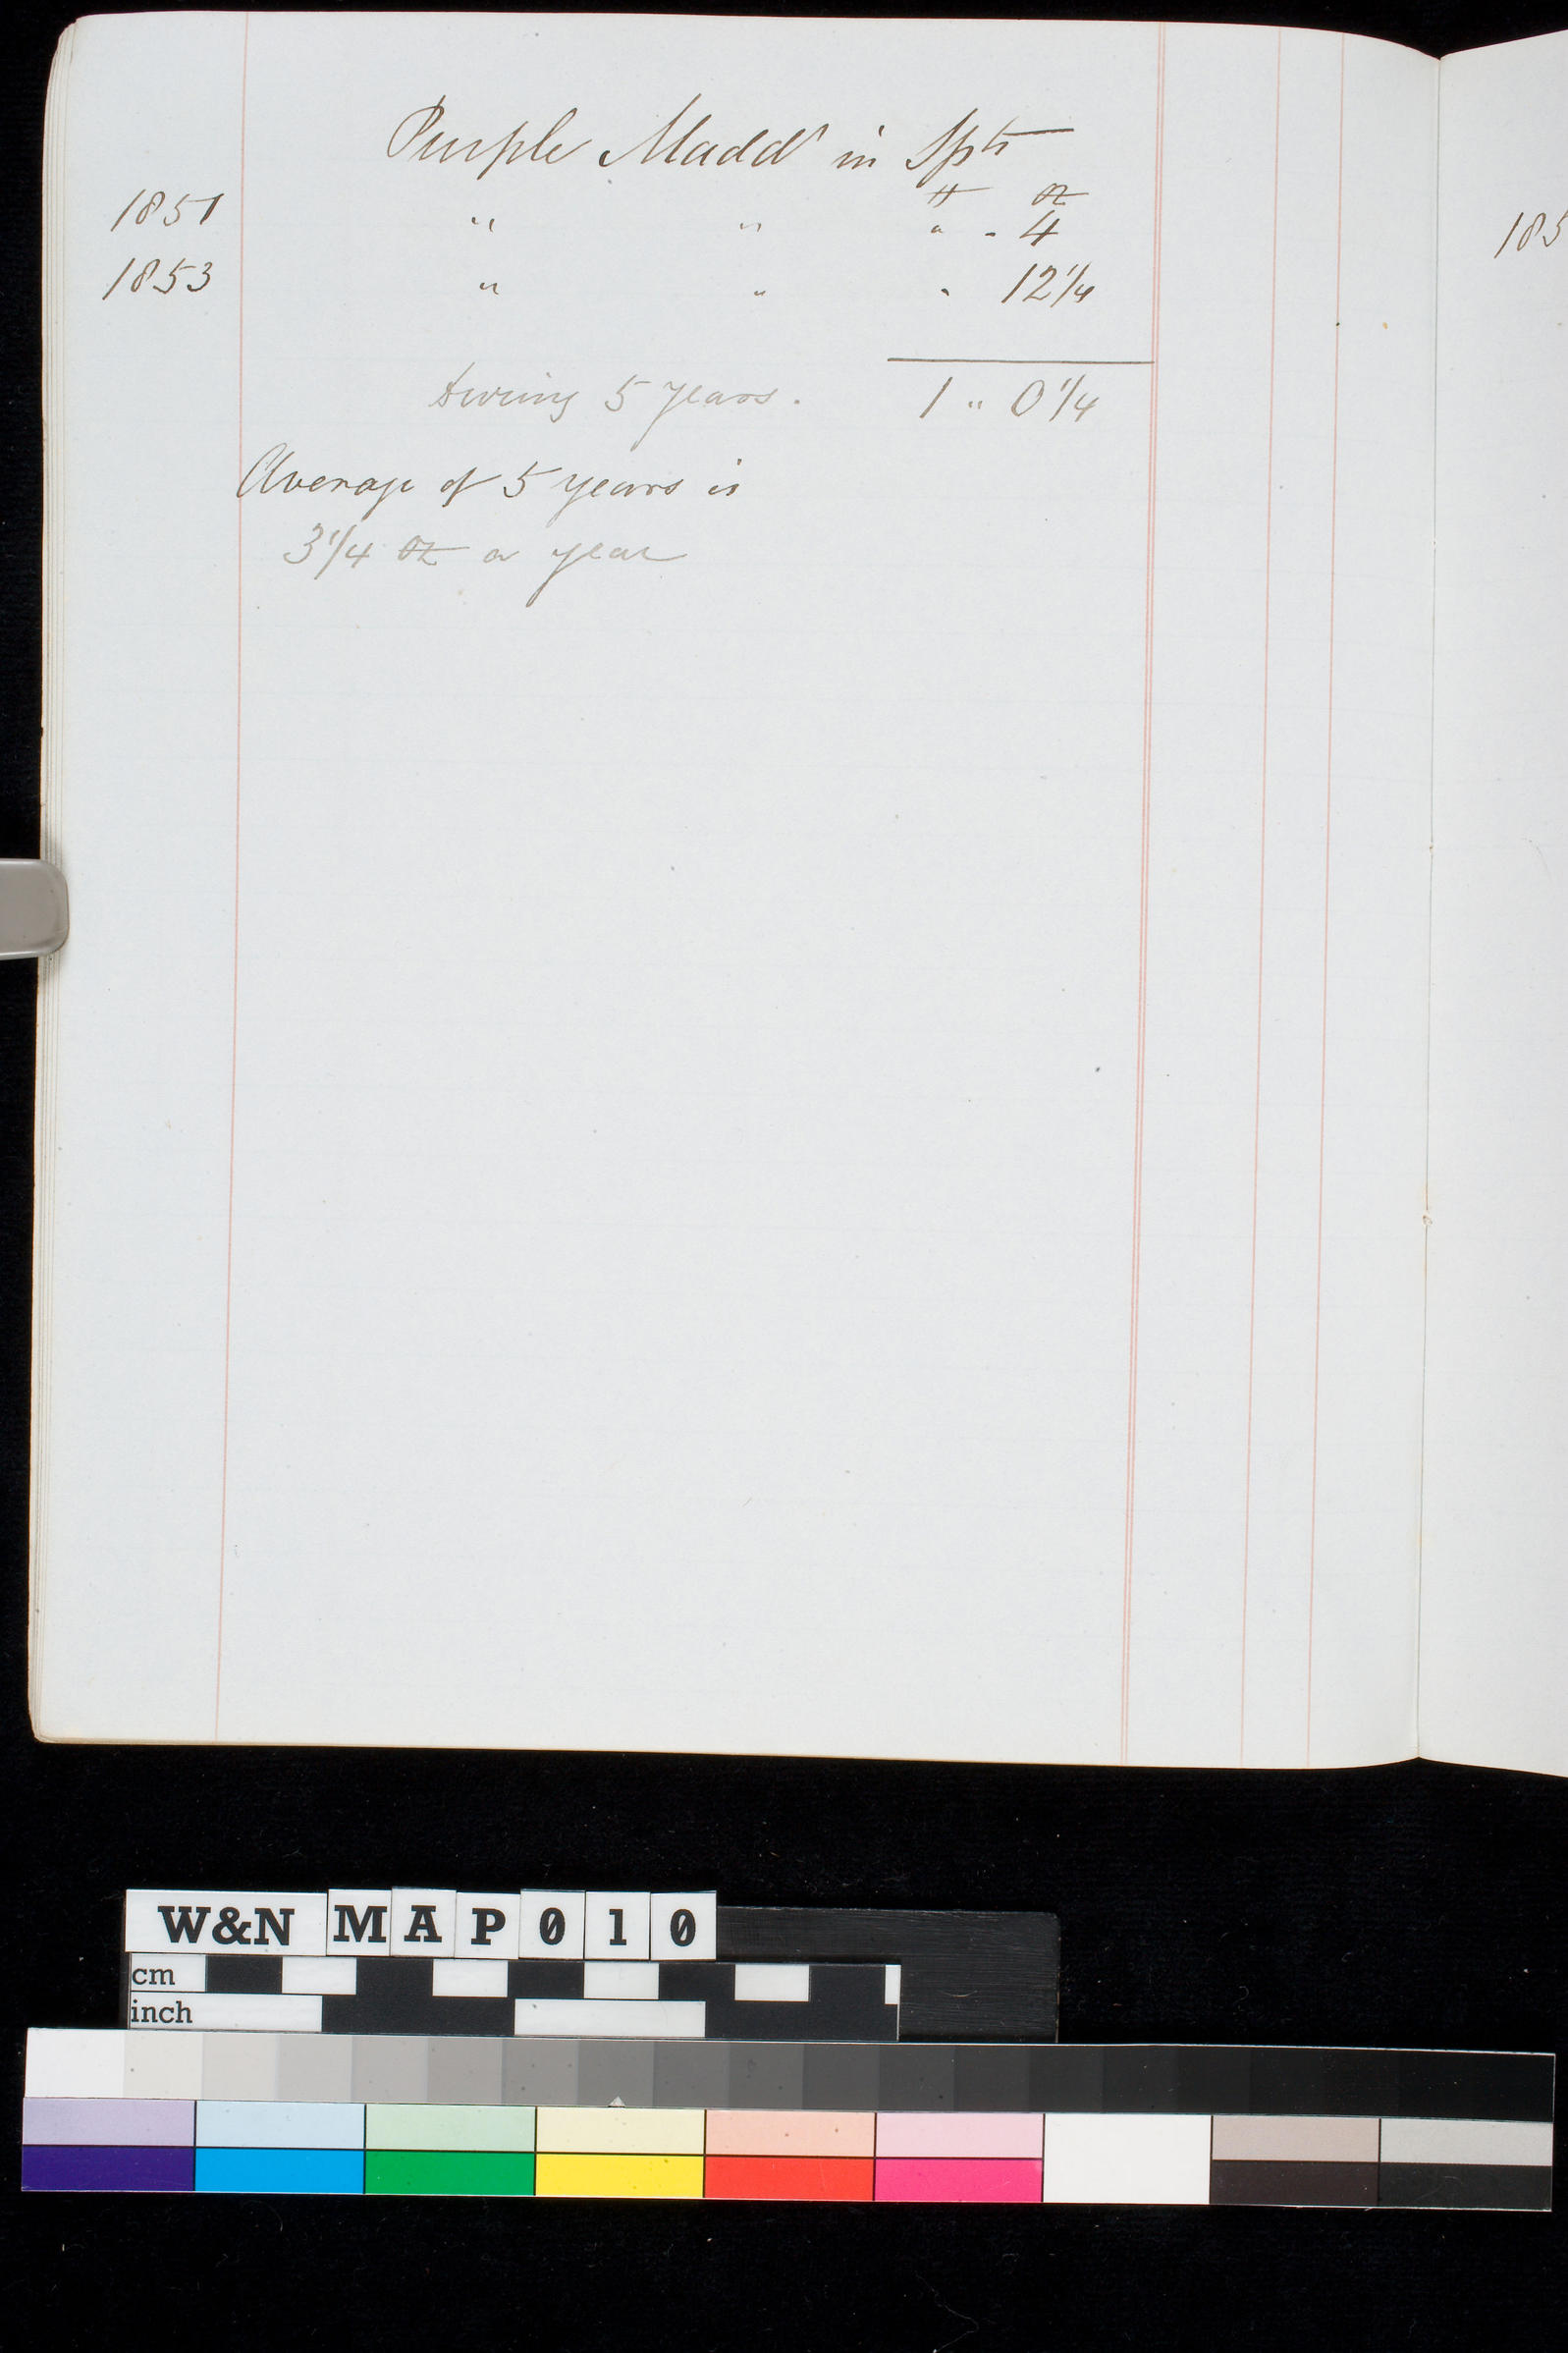 Purple Madd<sup>r</sup> in Spts
lb oz
1851 " " " " 4
1853 " " " 12 1/4
during 5 years. 1 " 0 1/4
Average of 5 years is
3 1/4 oz a year
185
W&N MAP010
cm
inch